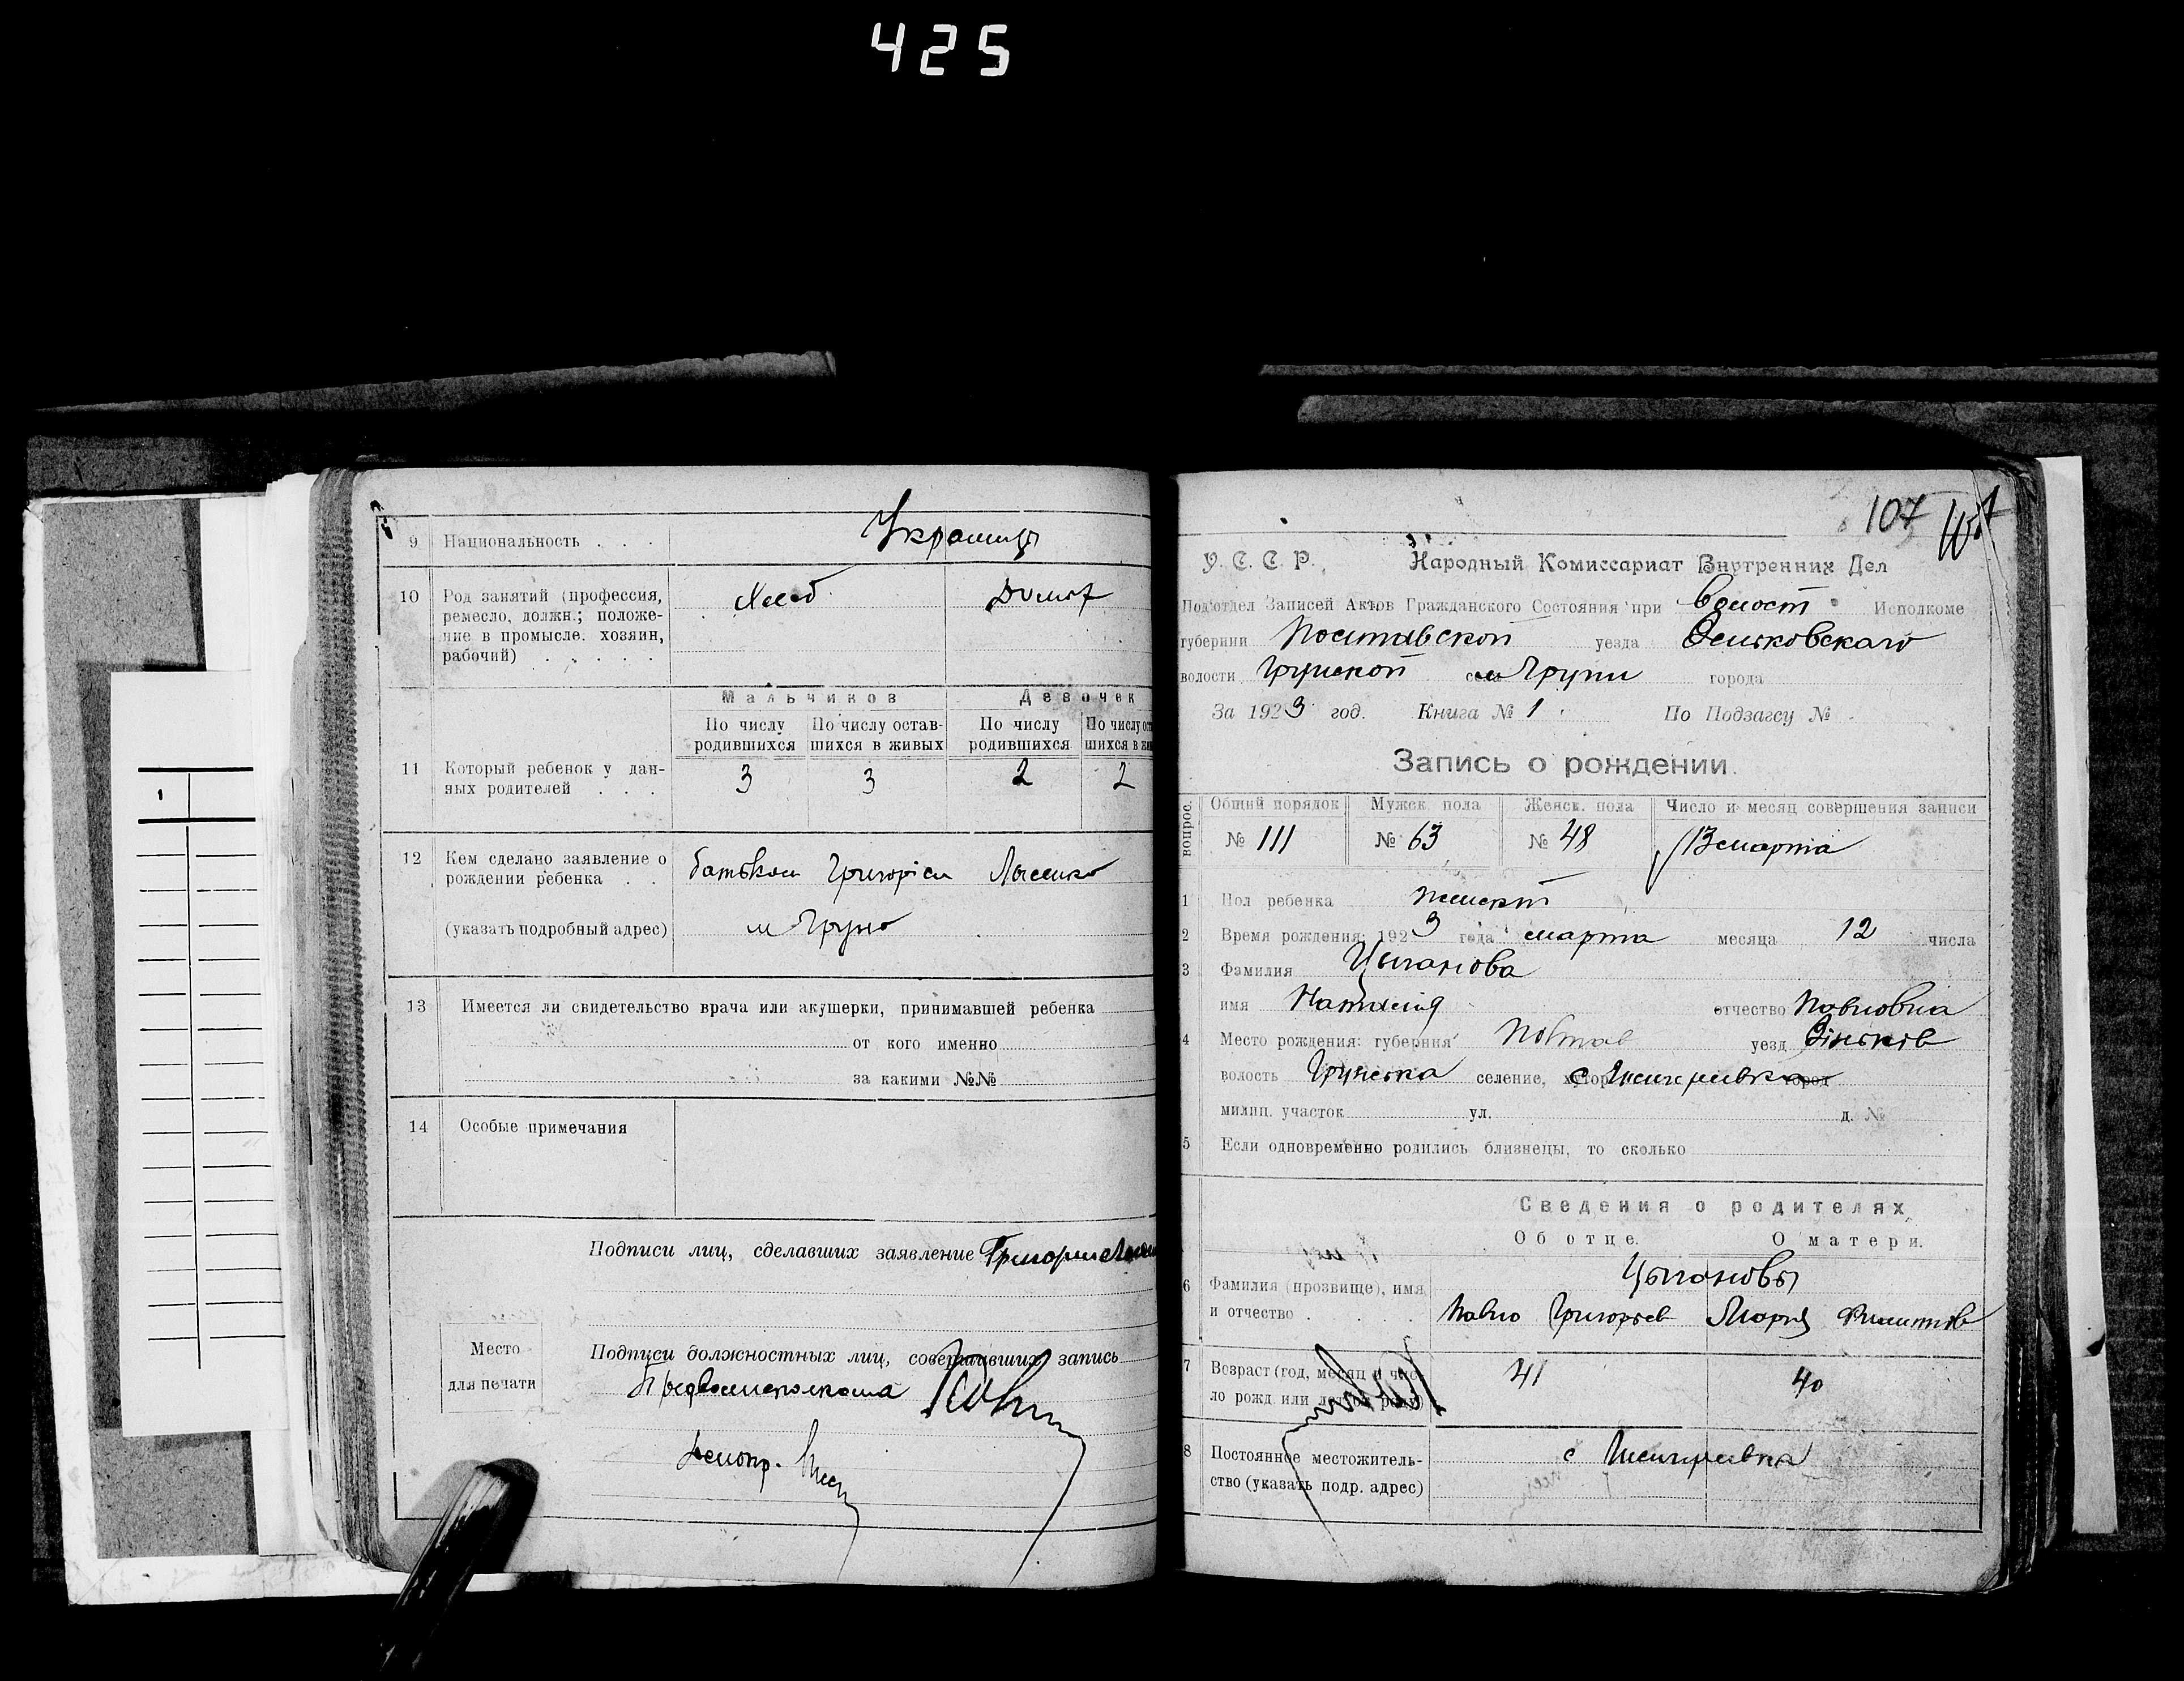 425
9 Национальность . . . Украинцы
10 Род занятий (профессия, ремесло, должн.; положе-
ние в промысле. хозяин,
рабочий) . . . . . Хлеб Домохоз
Мальчиков Девочек
По числу родившихся По числу остав-шихся в живых По числу родившихся По числу
11 Который ребенок у дан-
ных родителей . . . 3 3 2 2
12 Кем сделано заявление о
рождении ребенка . . батьком Григорієм Лысенко
(указать подробный адрес) м Грунь
13 Имеется ли свидетельство врача или акушерки, принимавшей ребенка
от кого именно
за какими №№
14 Особые примечания
Подписи лиц, сделавших заявление Григорий
Место
для печати
Подписи должностных лиц, совершивших запись
Предволисполкома
Делопр.
107
У. С. С. Р. Народный Комиссариат Внутренних Дел
Подотдел Записей Актов Гражданского Состояния при Волост Исполкоме
губернии Полтавской уезда Зеньковскаго
волости Грунской села м Груни города
За 1923 год. Книга № 1 По Подзагсу №
Запись о рождении.
вопрос. Общий порядок Мужск. пола Женск. пола Число и месяц совершения записи
№ 111 № 63 № 48 13 марта
1 Пол ребенка женский
2 Время рождения: 1923 года марта месяца 12 числа
3 Фамилия Цыганова
имя Наталия отчество Павловна
4 Место рождения: губерния Полтав уезд Зіньків
волость Грунська селение, хутор с
милиц. участок ул. д. №
5 Если одновременно родились близнецы, то сколько
Сведения о родителях
Об отце. О матери.
Цыгановы
6 Фамилия (прозвище), имя
и отчество . . . . Павло Григорьев Мария
7 Возраст (год, месяц и чис-
ло рожд. или 41 40
8 Постоянное местожитель-
ство (указать подр. адрес) с